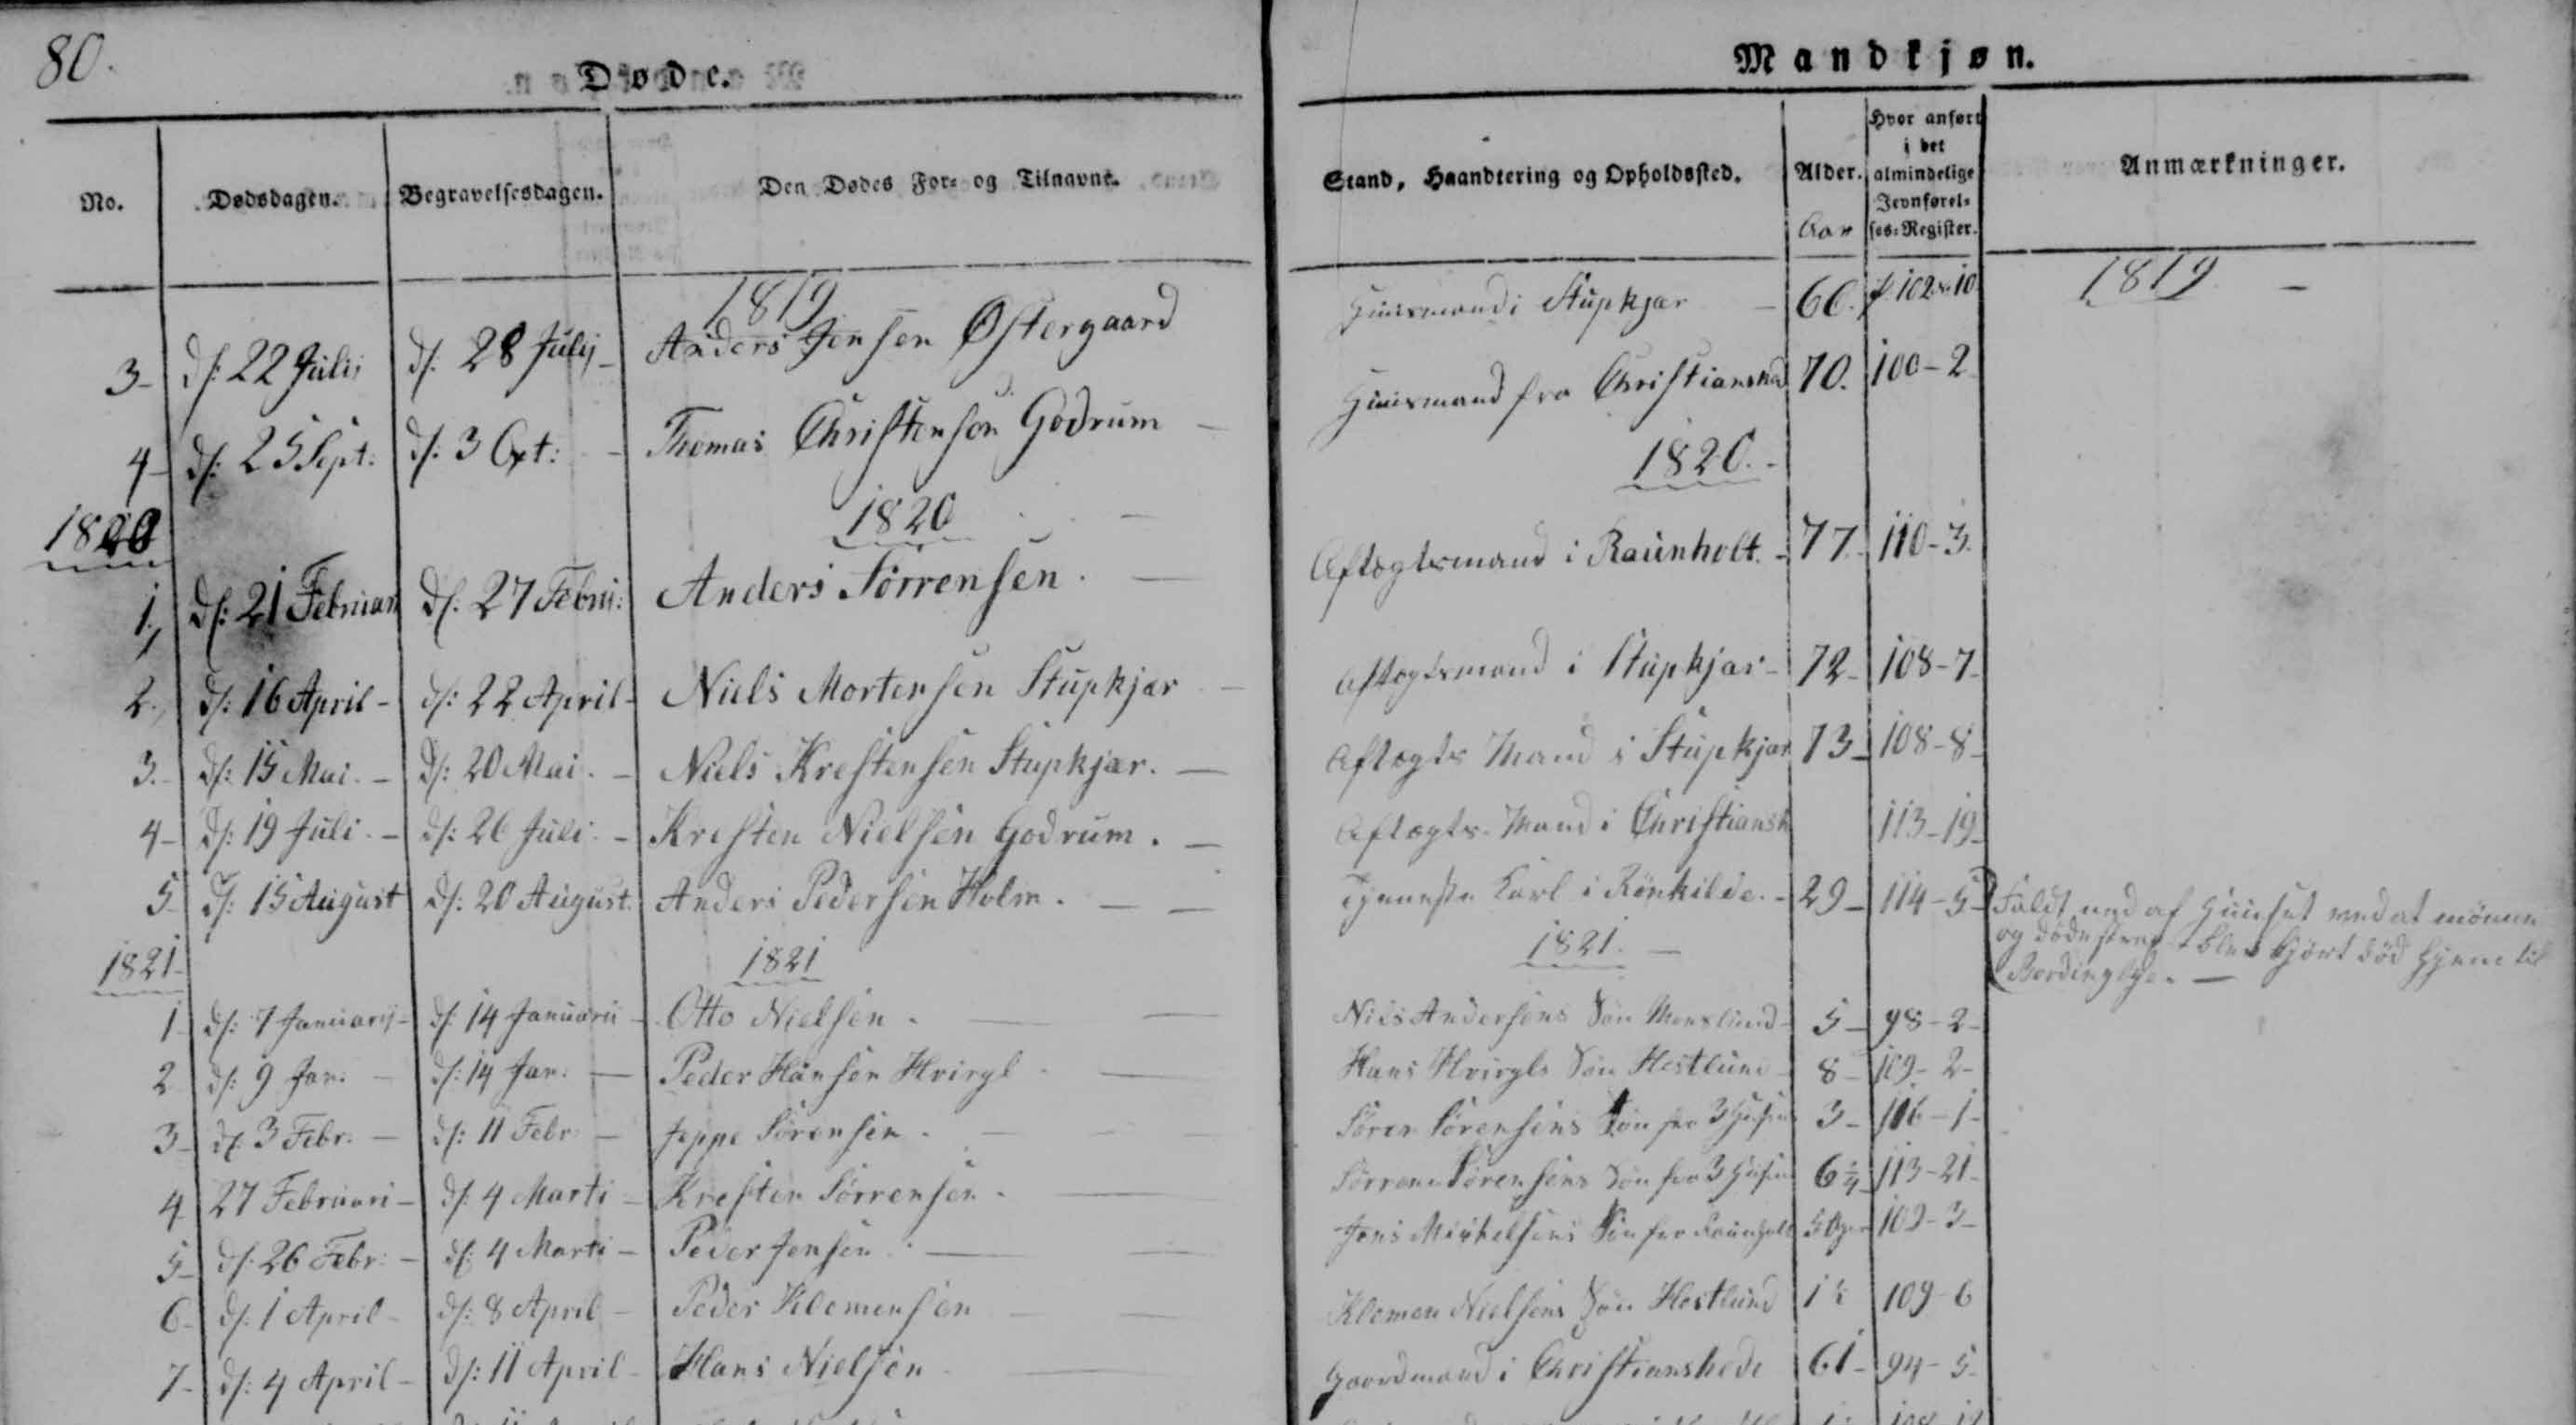 80.
Døde.
Mandkjøn.
No. Dødsdagen. Begravelsesdagen. Den Dødes For- og Tilnavne. Stand, Haandtering og Opholdssted. Alder. Aar Hvor anført i det almindelige Jevnførel-ses-Register. Anmærkninger.
1819 1819 -
3- d/: 22 Julij d/: 28 Julij - Anders Jensen Østergaard Huusmand i Stupkjær - 66. f. 102 n. 10
4- d/: 25 Sept: d/: 3 Oct: - Thomas Christensen Godrum - Huusmand fra Christianshed 70. 100-2
1820 1820 1820.-
1, d/: 21 Februar d/: 27 Febru: Anders Sörrensen. - Aftægtsmand i Raunholt.- 77. 110-3.
2., d/: 16 April- d/: 22 April- Niels Mortensen Stupkjær - Aftægtsmand i Stupkjær- 72- 108-7-
3.- d/: 15 Mai.- d/: 20 Mai.- Niels Krestensen Stupkjær. - Aftægts Mand i Stupkjær 73- 108-8-
4- d/: 19 Juli.- d/: 26 Juli.- Kresten Nielsen Godrum. - Aftægts-Mand i Christiansh 113-19-
5- d/: 15 August d/: 20 August. Anders Pedersen Holm. - - Tjeneste Karl i Rönkilde.- 29- 114-5- Faldt ned af Huuset ved at mönne
og döde strax - blev kjört död hjem til
Bordinglye. -
1821- 1821 1821. -
1- d/: 7 Januarij- d/: 14 Januarii- Otto Nielsen. - Niels Andersens Sön Monslund- 5- 98-2-
2 d/: 9 Jan. - d/: 14 Jan. - Peder Hansen Hvirgl - Hans Hvirgls Sön Hestlund- 8- 109-2-
3- d/: 3 Febr. - d/: 11 Febr - Jeppe Sörensen. - Sören Sörensens Sön fra 3 Husene 3- 116-1-
4 27 Februari- d/: 4 Marti- Kresten Sörrensen. - Sörren Sörensens Sön fra 3 Husene 6 ¾ 113-21-
5- d/: 26 Febr:- d/: 4 Marti- Peder Jensen. - Jens Mikkelsens Sön fra Raunholt 109-3-
6- d/: 1 April- d/: 8 April- Peder Klemensen Klemen Nielsens Sön Hestlund 1½ 109-6
7- d/: 4 April- d/: 11 April- Hans Nielsen Gaardmand i Christianshede 61- 94-5-